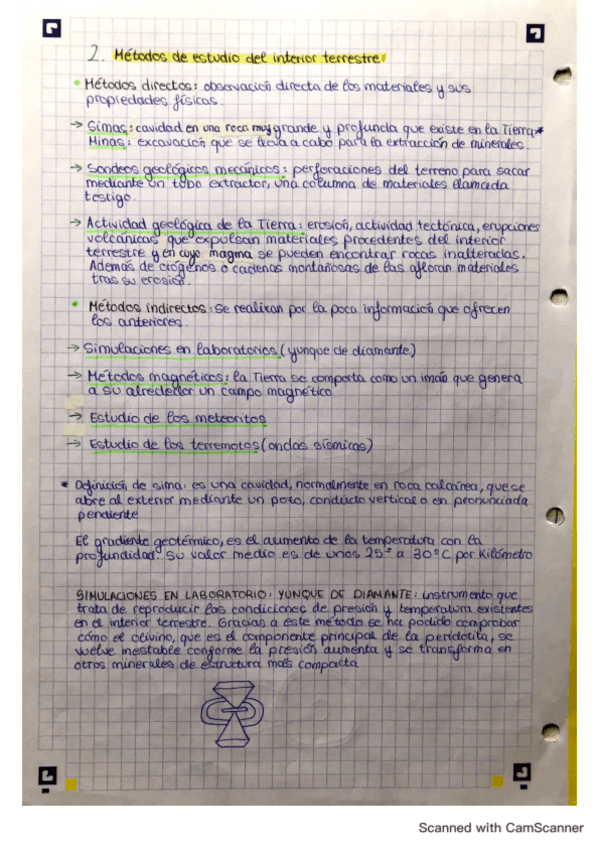 2. Métodos de estudio del interior terrestre
• Métodos directos: observación directa de los materiales y sus
propiedades físicas.
→ Simas: cavidad en una roca muy grande y profunda que existe en la Tierra*
Minas: excavación que se lleva a cabo para la extracción de minerales.
→ Sondeos geológicos mecánicos: perforaciones del terreno para sacar
mediante un tubo extractor, una columna de materiales llamada
testigo.
→ Actividad geológica de la Tierra: erosión, actividad tectónica, erupciones
volcánicas que expulsan materiales procedentes del interior
terrestre y en cuyo magma se pueden encontrar rocas inalteradas.
Además de orógenos o cadenas montañosas de las afloran materiales
tras su erosión.
• Métodos indirectos: se realizan por la poca información que ofrecen
los anteriores.
→ Simulaciones en laboratorios (yunque de diamante)
→ Métodos magnéticos: la Tierra se comporta como un imán que genera
a su alrededor un campo magnético
→ Estudio de los meteoritos
→ Estudio de los terremotos (ondas sísmicas)
* Definición de sima: es una cavidad, normalmente en roca calcárea, que se
abre al exterior mediante un pozo, conducto vertical o en pronunciada
pendiente
El gradiente geotérmico, es el aumento de la temperatura con la
profundidad. Su valor medio es de unos 25º a 30ºC por Kilómetro
SIMULACIONES EN LABORATORIO: YUNQUE DE DIAMANTE: instrumento que
trata de reproducir las condiciones de presión y temperatura existentes
en el interior terrestre. Gracias a este método se ha podido comprobar
cómo el olivino, que es el componente principal de la peridotita, se
vuelve inestable conforme la presión aumenta y se transforma en
otros minerales de estructura más compacta
Scanned with CamScanner